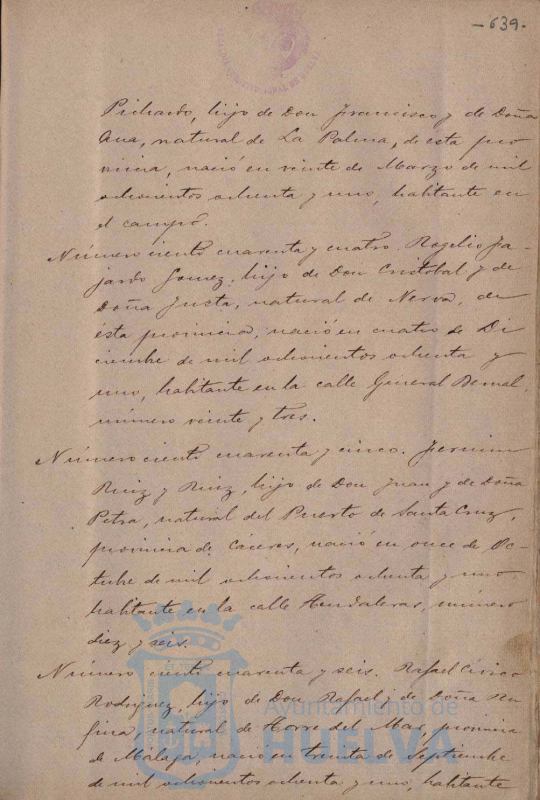 -639-
Pichardo, hijo de Don Francisco y de Doña
Ana, natural de La Palma, de esta pro
vincia, nació en veinte de Marzo de mil
ochocientos ochenta y uno, habitante en
el campo.
Número ciento cuarenta y cuatro. Rogelio Fa-
jardo Gomez, hijo de Don Cristobal y de
Doña Justa, natural de Nerva, de
ésta provincia, nació en cuatro de Di
ciembre de mil ochocientos ochenta y
uno, habitante en la calle General Bernal,
número veinte y tres.
Número ciento cuarenta y cinco. Fermin
Ruiz y Ruiz, hijo de Don Juan y de Doña
Petra, natural del Puerto de Santa Cruz,
provincia de Cáceres, nació en once de Oc-
tubre de mil ochocientos ochenta y uno
habitante en la calle número
diez y seis.
Número ciento cuarenta y seis. Rafael
Rodriguez, hijo de Don Rafael y de Doña Ru
fina, natural de Torre del Mar, provincia
de Málaga, nació en treinta de Septiembre
de mil ochocientos ochenta y uno, habitante
Ayuntamiento de
HUELVA